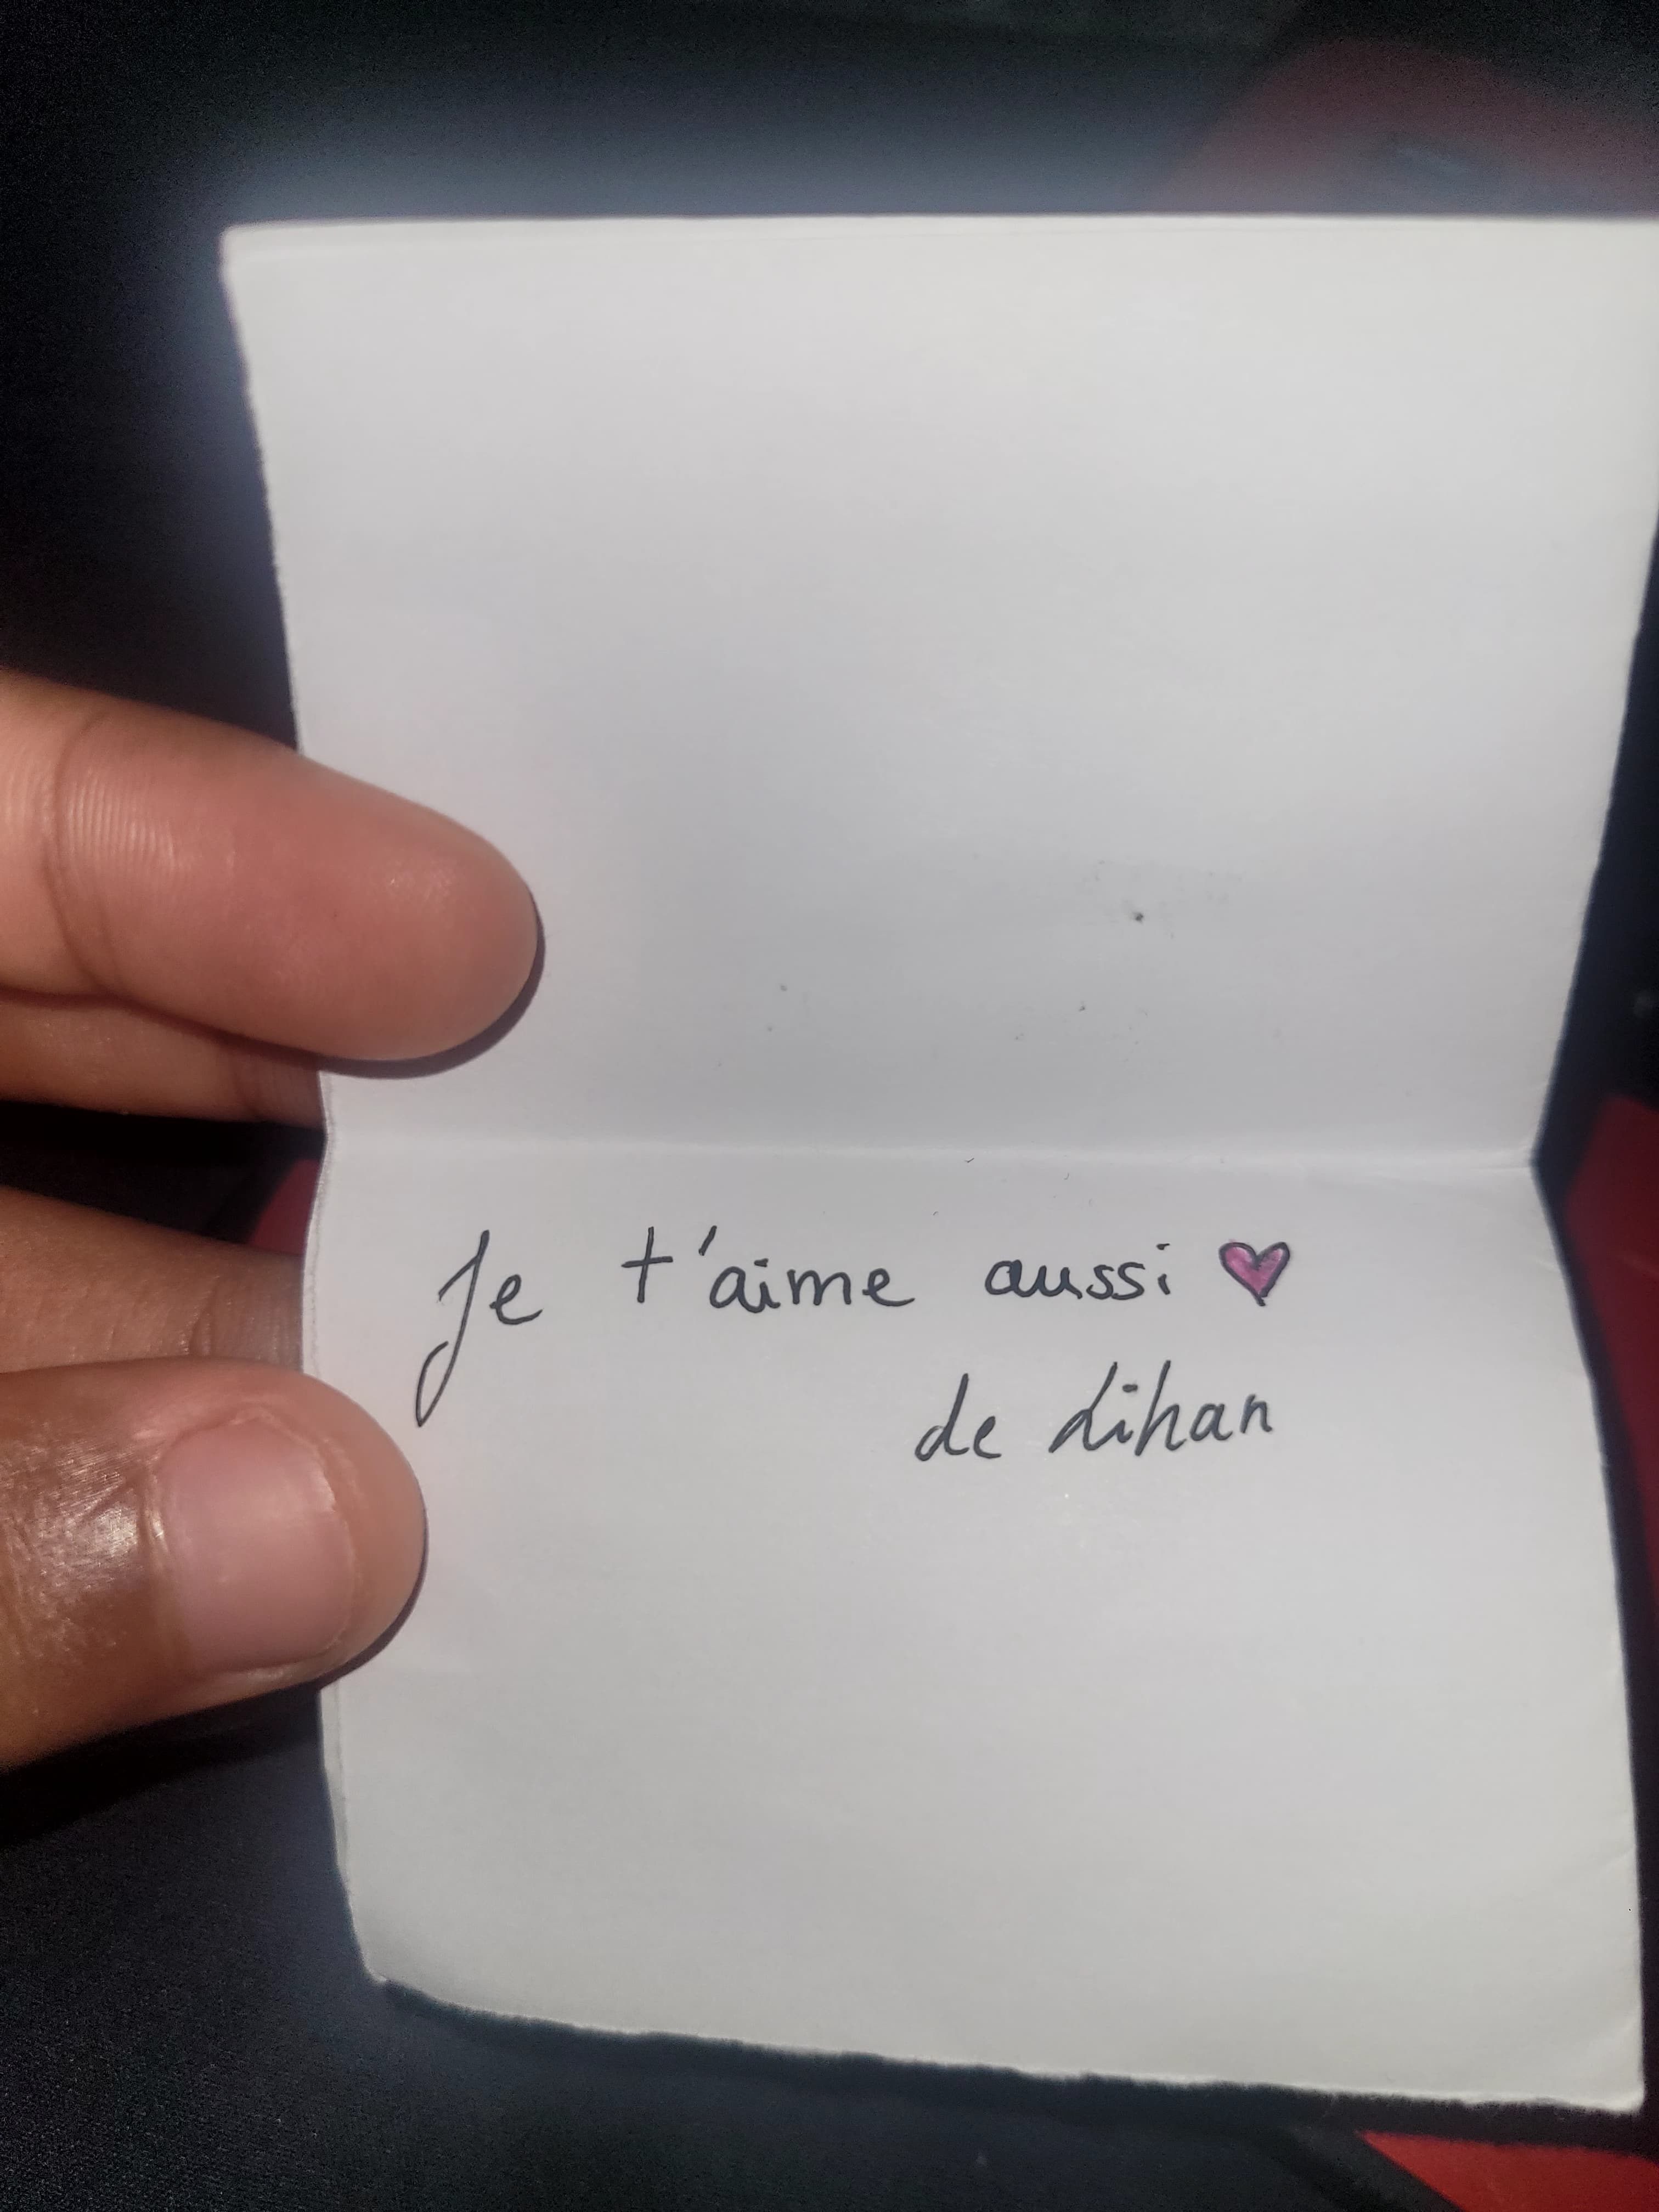 Je t'aime aussi ♥
de Lihan